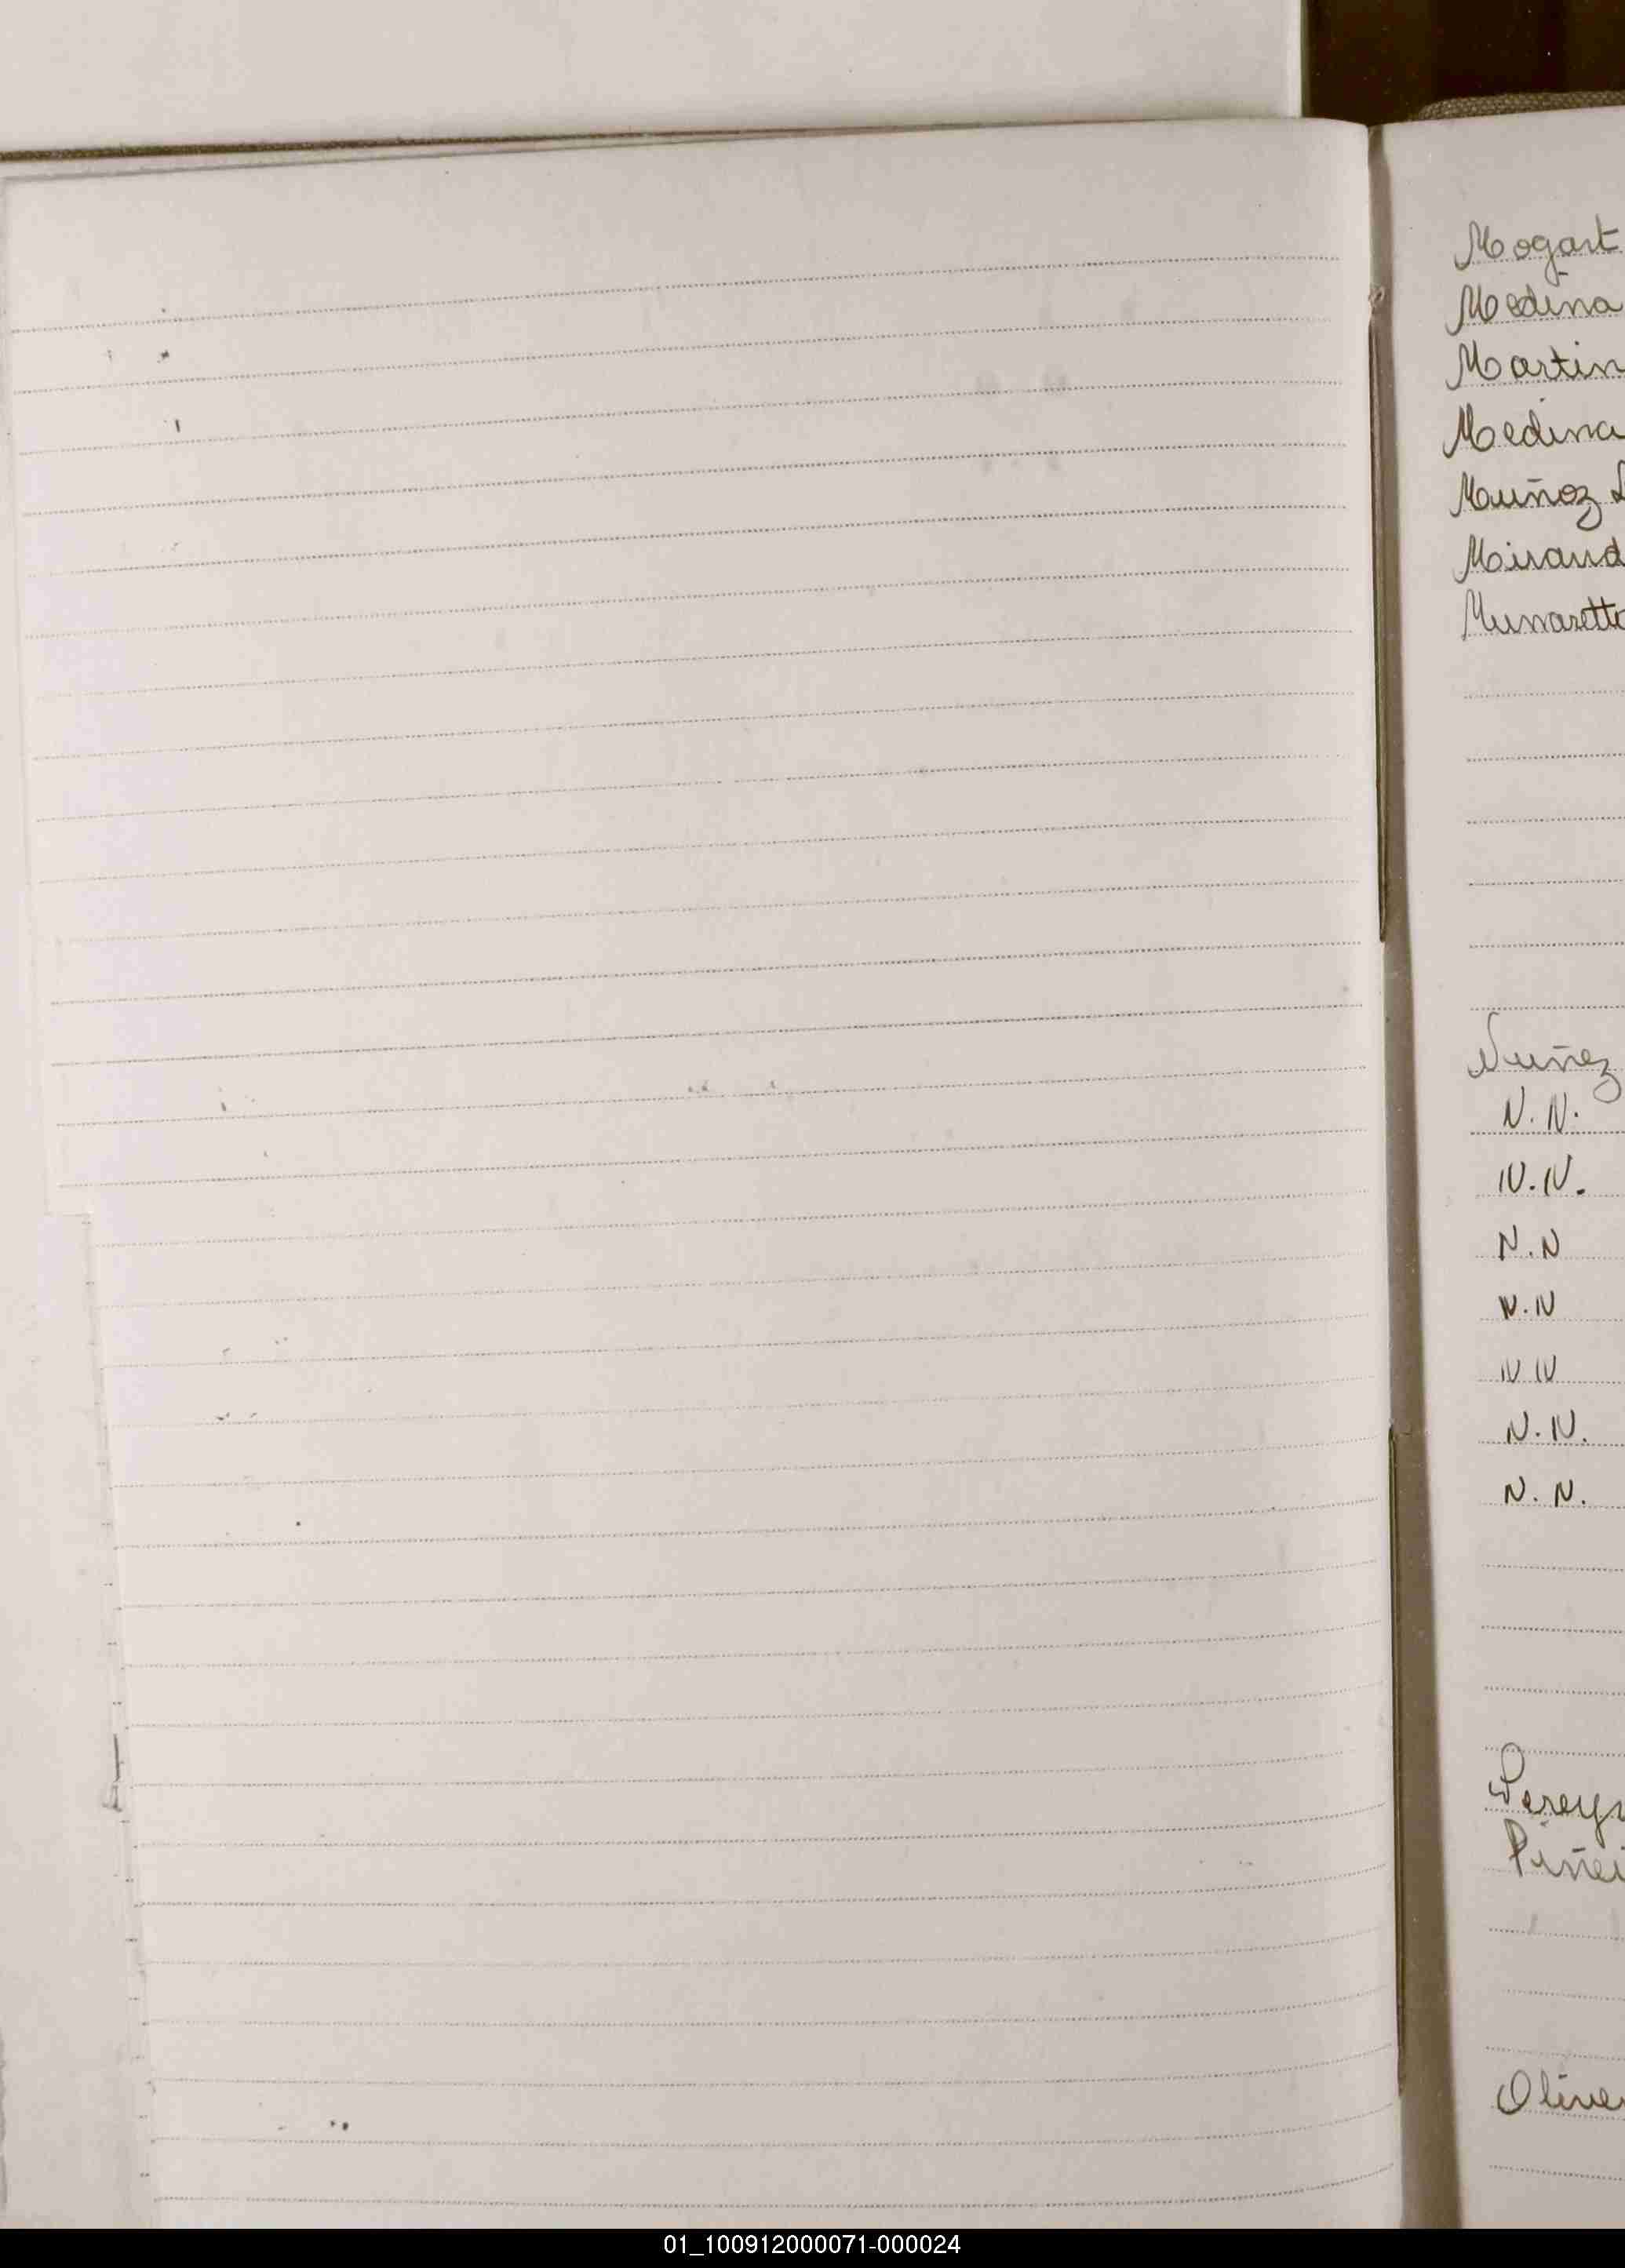 Mogart
Medina
Martin
Medina
Muñoz
Mirand
Munaretto
Nuñez
N. N.
N. N.
N. N
N. N
N N
N. N.
N. N.
Pereyr
Piñei
Oliver
01_100912000071-000024